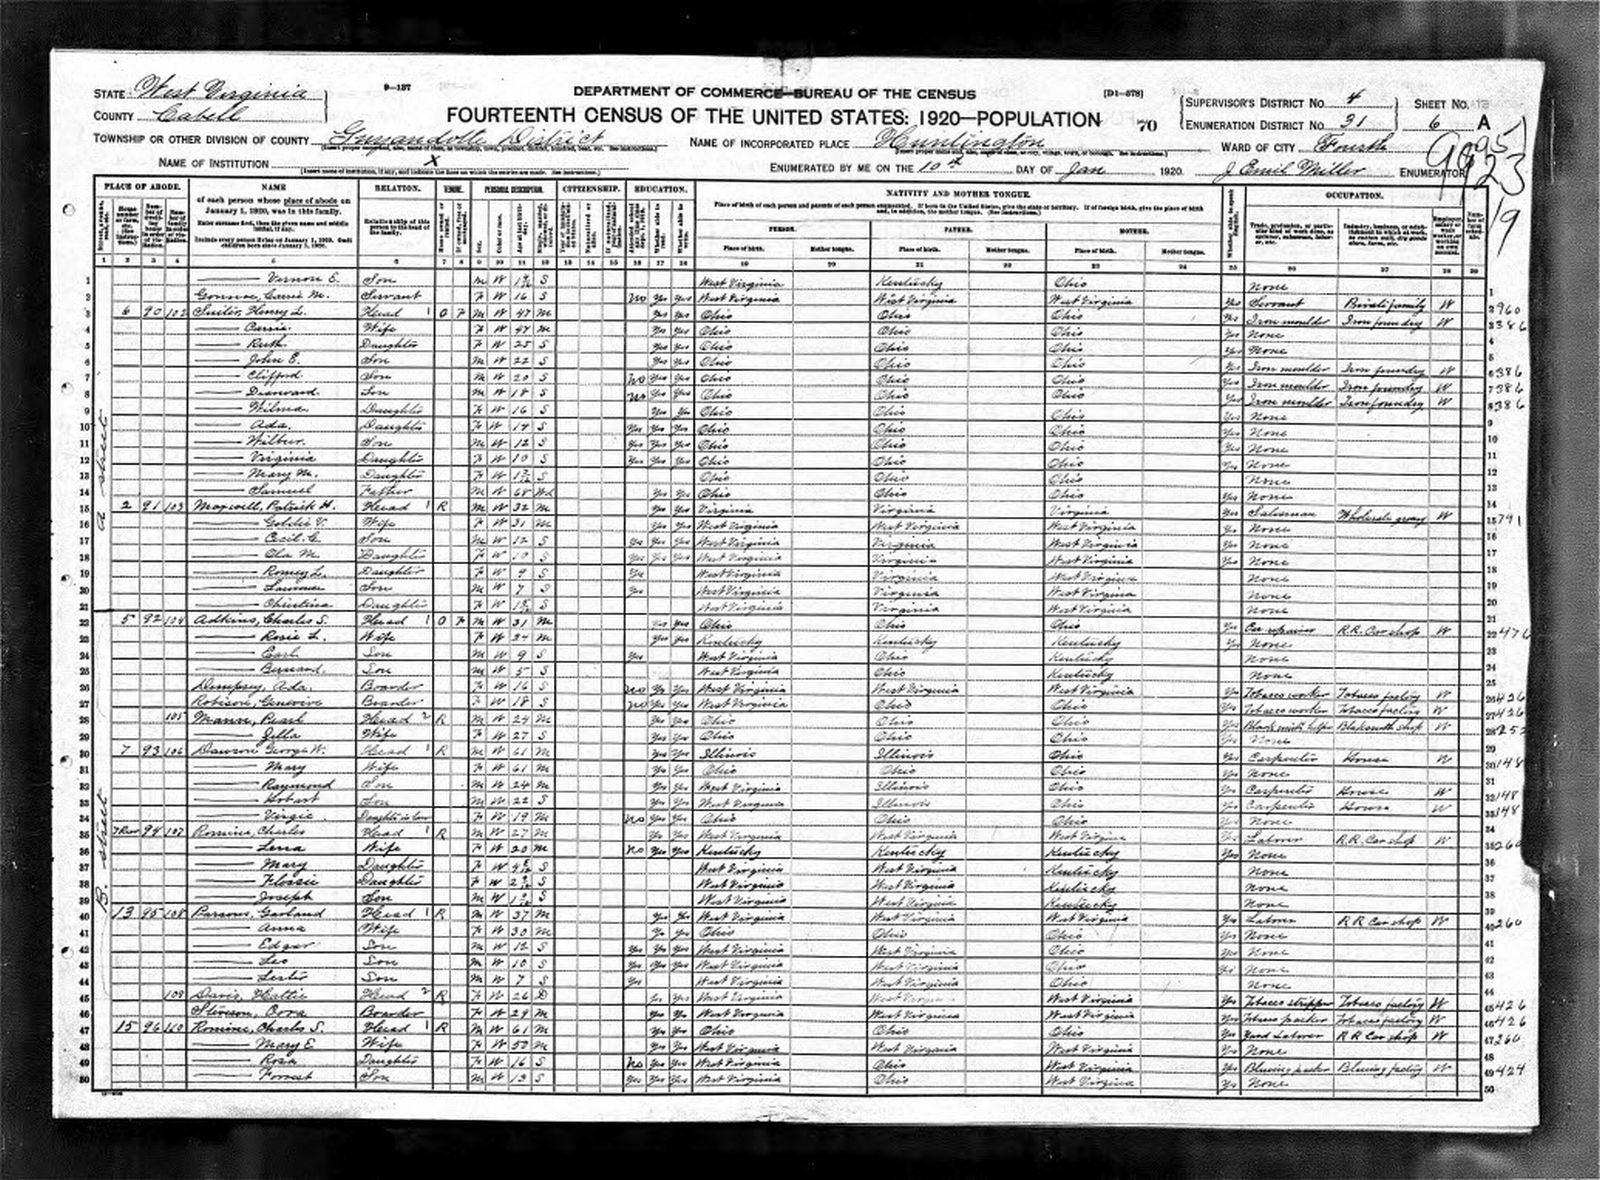 STATE West Virginia
9-137
DEPARTMENT OF COMMERCE—BUREAU OF THE CENSUS
[D1-578]
COUNTY Cabell
FOURTEENTH CENSUS OF THE UNITED STATES: 1920—POPULATION
70
SUPERVISOR'S DISTRICT No. 4
SHEET No.
ENUMERATION DISTRICT No. 31
6 A
TOWNSHIP OR OTHER DIVISION OF COUNTY Guyandotte District
NAME OF INCORPORATED PLACE Huntington
WARD OF CITY Fourth
NAME OF INSTITUTION X
ENUMERATED BY ME ON THE 10th DAY OF Jan 1920.
J Emil Miller ENUMERATOR
PLACE OF ABODE. NAME RELATION. TENURE. PERSONAL DESCRIPTION. CITIZENSHIP. EDUCATION. NATIVITY AND MOTHER TONGUE. OCCUPATION.
of each person whose place of abode on January 1, 1920, was in this family.
Relationship of this person to the head of the family.
PERSON. FATHER. MOTHER.
Place of birth. Mother tongue. Place of birth. Mother tongue. Place of birth. Mother tongue.
1 Vernon E. Son M W S West Virginia Kentucky Ohio None
2 Carrie M. Servant F W 16 S no Yes Yes West Virginia West Virginia West Virginia Yes Servant Private family W 960
3 6 90 102 Suiter, Henry L. Head 1 O F M W 47 M Yes Yes Ohio Ohio Ohio Yes Iron moulder Iron foundry W 386
4 Carrie Wife F W 47 M Yes Yes Ohio Ohio Ohio Yes None
5 Ruth Daughter F W 25 S Yes Yes Ohio Ohio Ohio Yes None
6 John E. Son M W 22 S Yes Yes Ohio Ohio Ohio Yes Iron moulder Iron foundry W 386
7 Clifford Son M W 20 S no Yes Yes Ohio Ohio Ohio Yes Iron moulder Iron foundry W 386
8 Son M W 18 S no Yes Yes Ohio Ohio Ohio Yes Iron moulder Iron foundry W 386
9 Wilma Daughter F W 16 S Yes Yes Ohio Ohio Ohio Yes None
10 Ada Daughter F W 14 S Yes Yes Yes Ohio Ohio Ohio Yes None
11 Wilbur Son M W 12 S Yes Yes Yes Ohio Ohio Ohio Yes None
12 Virginia Daughter F W 10 S Yes Yes Yes Ohio Ohio Ohio Yes None
13 Mary M. Daughter F W S Ohio Ohio Ohio None
14 Samuel Father M W 68 Wd Yes Yes Ohio Ohio Ohio Yes None
15 2 91 103 Maxwell, Patrick H. Head 1 R M W 32 M Yes Yes Virginia Virginia Virginia Yes Salesman Wholesale grocery W 791
16 Goldie V. Wife F W 31 M Yes Yes West Virginia West Virginia West Virginia Yes None
17 Cecil C. Son M W 12 S Yes Yes Yes West Virginia Virginia West Virginia Yes None
18 Ola M. Daughter F W 10 S Yes Yes Yes West Virginia Virginia West Virginia Yes None
19 Romey L. Daughter F W 9 S Yes West Virginia Virginia West Virginia None
20 Lawrence Son M W 7 S Yes West Virginia Virginia West Virginia None
21 Christina Daughter F W S West Virginia Virginia West Virginia None
22 5 92 104 Adkins, Charles S. Head 1 O F M W 31 M Yes Yes Ohio Ohio Ohio Yes Car repairer R.R. Car shop W 476
23 Rosie L. Wife F W 24 M Yes Yes Kentucky Kentucky Kentucky Yes None
24 Earl Son M W 9 S Yes West Virginia Ohio Kentucky None
25 Bernard Son M W 5 S West Virginia Ohio Kentucky None
26 Dempsey, Ada Boarder F W 16 S no Yes Yes West Virginia West Virginia West Virginia Yes Tobacco worker Tobacco factory W 426
27 Robison, Genevive Boarder F W 18 S no Yes Yes West Virginia Ohio Ohio Yes Tobacco worker Tobacco factory W 426
28 105 Mann, Pearl Head 2 R M W 24 M Yes Yes Ohio Ohio Ohio Yes Black smith helper Blacksmith shop W 252
29 Zella Wife F W 27 S Yes Yes Ohio Ohio Ohio Yes None
30 7 93 106 Dawson, George W. Head 1 R M W 61 M Yes Yes Illinois Illinois Ohio Yes Carpenter House W 148
31 Mary Wife F W 61 M Yes Yes Ohio Ohio Ohio Yes None
32 Raymond Son M W 24 M Yes Yes West Virginia Illinois Ohio Yes Carpenter House W 148
33 Hobart Son M W 22 S Yes Yes West Virginia Illinois Ohio Yes Carpenter House W 148
34 Virgie Daughter in law F W 19 M no Yes Yes Ohio Ohio Ohio Yes None
35 7 Rear 94 107 Romine, Charles Head 1 R M W 27 M Yes Yes West Virginia West Virginia West Virginia Yes Laborer R.R. Car shop W 260
36 Lena Wife F W 20 M no Yes Yes Kentucky Kentucky Kentucky Yes None
37 Mary Daughter F W S West Virginia West Virginia Kentucky None
38 Flossie Daughter F W S West Virginia West Virginia Kentucky None
39 Joseph Son M W S West Virginia West Virginia Kentucky None
40 13 95 108 Parsons, Garland Head 1 R M W 37 M Yes Yes West Virginia West Virginia West Virginia Yes Laborer R R Car shop W 260
41 Anna Wife F W 30 M Yes Yes Ohio Ohio Ohio Yes None
42 Edgar Son M W 12 S Yes Yes Yes West Virginia West Virginia Ohio Yes None
43 Leo Son M W 10 S Yes Yes Yes West Virginia West Virginia Ohio Yes None
44 Lester Son M W 7 S Yes West Virginia West Virginia Ohio None
45 109 Davis, Hattie Head 2 R F W 26 D Yes Yes West Virginia West Virginia West Virginia Yes Tobacco stripper Tobacco factory W 426
46 Cora Boarder F W 29 M Yes Yes West Virginia West Virginia West Virginia Yes Tobacco packer Tobacco factory W 426
47 15 96 110 Romine, Charles S. Head 1 R M W 61 M Yes Yes Ohio Ohio Ohio Yes Yard Laborer R R Car shop W 260
48 Mary E Wife F W 50 M Yes Yes West Virginia West Virginia West Virginia Yes None
49 Rosa Daughter F W 16 S no Yes Yes West Virginia Ohio West Virginia Yes Bluing packer Bluing factory W 424
50 Forrest Son M W 13 S Yes Yes Yes West Virginia Ohio West Virginia Yes None
B street